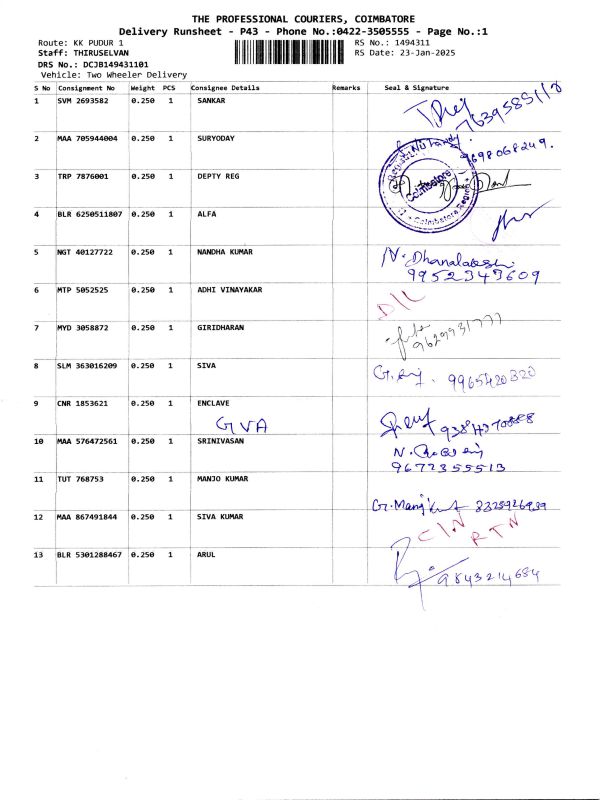 THE PROFESSIONAL COURIERS, COIMBATORE
Delivery Runsheet - P43 - Phone No.:0422-3505555 - Page No.:1
Route: KK PUDUR 1 RS No.: 1494311
Staff: THIRUSELVAN RS Date: 23-Jan-2025
DRS No.: DCJB149431101
Vehicle: Two Wheeler Delivery
S No Consignment No Weight PCS Consignee Details Remarks Seal & Signature
1 SVM 2693582 0.250 1 SANKAR
2 MAA 705944004 0.250 1 SURYODAY 9698068249.
3 TRP 7876001 0.250 1 DEPTY REG Coimbatore
4 BLR 6250511807 0.250 1 ALFA
5 NGT 40127722 0.250 1 NANDHA KUMAR N. Dhanalakshmi
9952343609
6 MTP 5052525 0.250 1 ADHI VINAYAKAR D/L
7 MYD 3058872 0.250 1 GIRIDHARAN 9629931777
8 SLM 363016209 0.250 1 SIVA 9965420320
9 CNR 1853621 0.250 1 ENCLAVE
GVA
10 MAA 576472561 0.250 1 SRINIVASAN
9672355513
11 TUT 768753 0.250 1 MANJO KUMAR
12 MAA 867491844 0.250 1 SIVA KUMAR C/N RTN
13 BLR 5301288467 0.250 1 ARUL 9843214684